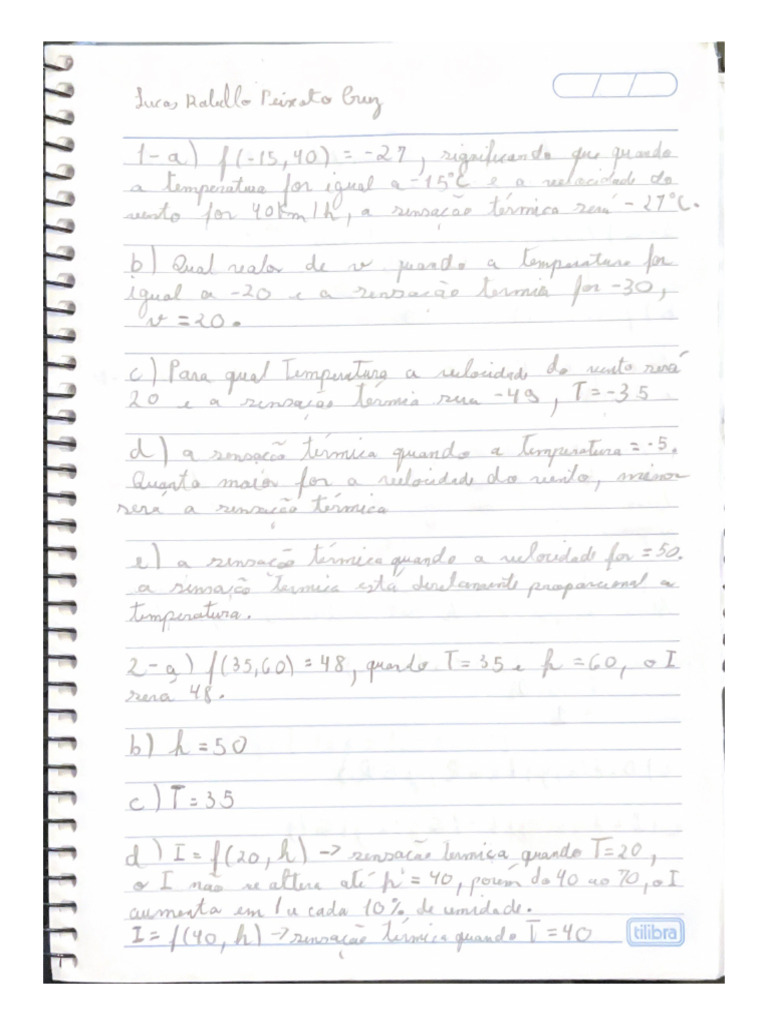 Lucas Rabello Peixoto Cruz
1-a) f(-15,40) = -27, significando que quando
a temperatura for igual a -15°C e a velocidade do
vento for 40Km/h, a sensação térmica será -27°C.
b) Qual valor de v quando a temperatura for
igual a -20 e a sensação termia for -30,
v = 20.
c) Para qual Temperatura a velocidade do vento será
20 e a sensação térmia sera -49, T = -35
d) a sensação térmica quando a Temperatura = -5.
Quanto maior for a velocidade do vento, menor
será a sensação térmica
e) a sensação térmica quando a velocidade for = 50.
a sensação termica está diretamente proporcional a
temperatura.
2-a) f(35,60) = 48, quando T = 35 e h = 60, o I
será 48.
b) h = 50
c) T = 35
d) I = f(20, h) -> sensação termica quando T = 20,
o I não se altera até h = 40, porém do 40 ao 70, o I
aumenta em 1 a cada 10% de umidade.
I = f(40, h) -> sensação térmica quando T = 40
tilibra